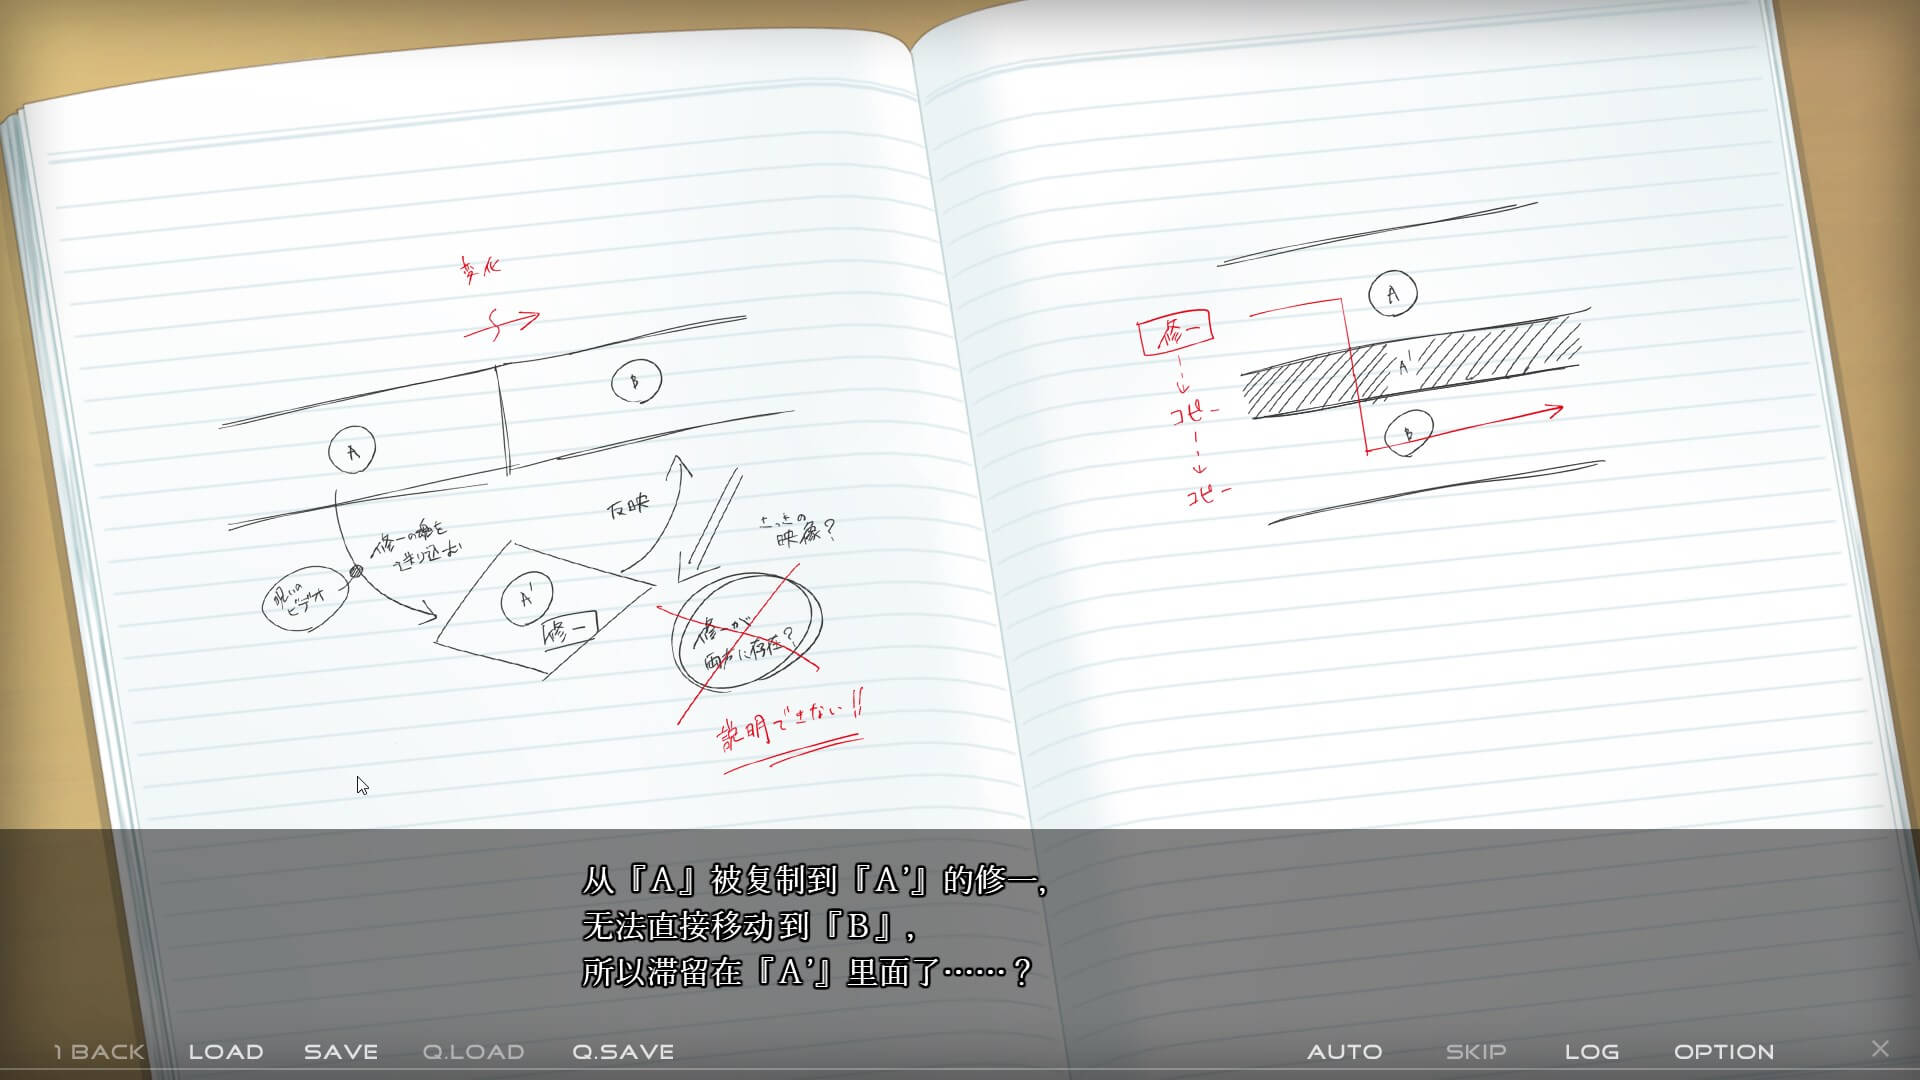 変化
A
B
修一の魂を
送り込む
呪いの
ビデオ
A'
修一
反映
さっきの
映像？
修一が
両方に存在？
説明できない!!
A
修一
A'
コピー
B
コピー
从『A』被复制到『A’』的修一，
无法直接移动到『B』，
所以滞留在『A’』里面了……？
1 BACK LOAD SAVE Q.LOAD Q.SAVE AUTO SKIP LOG OPTION